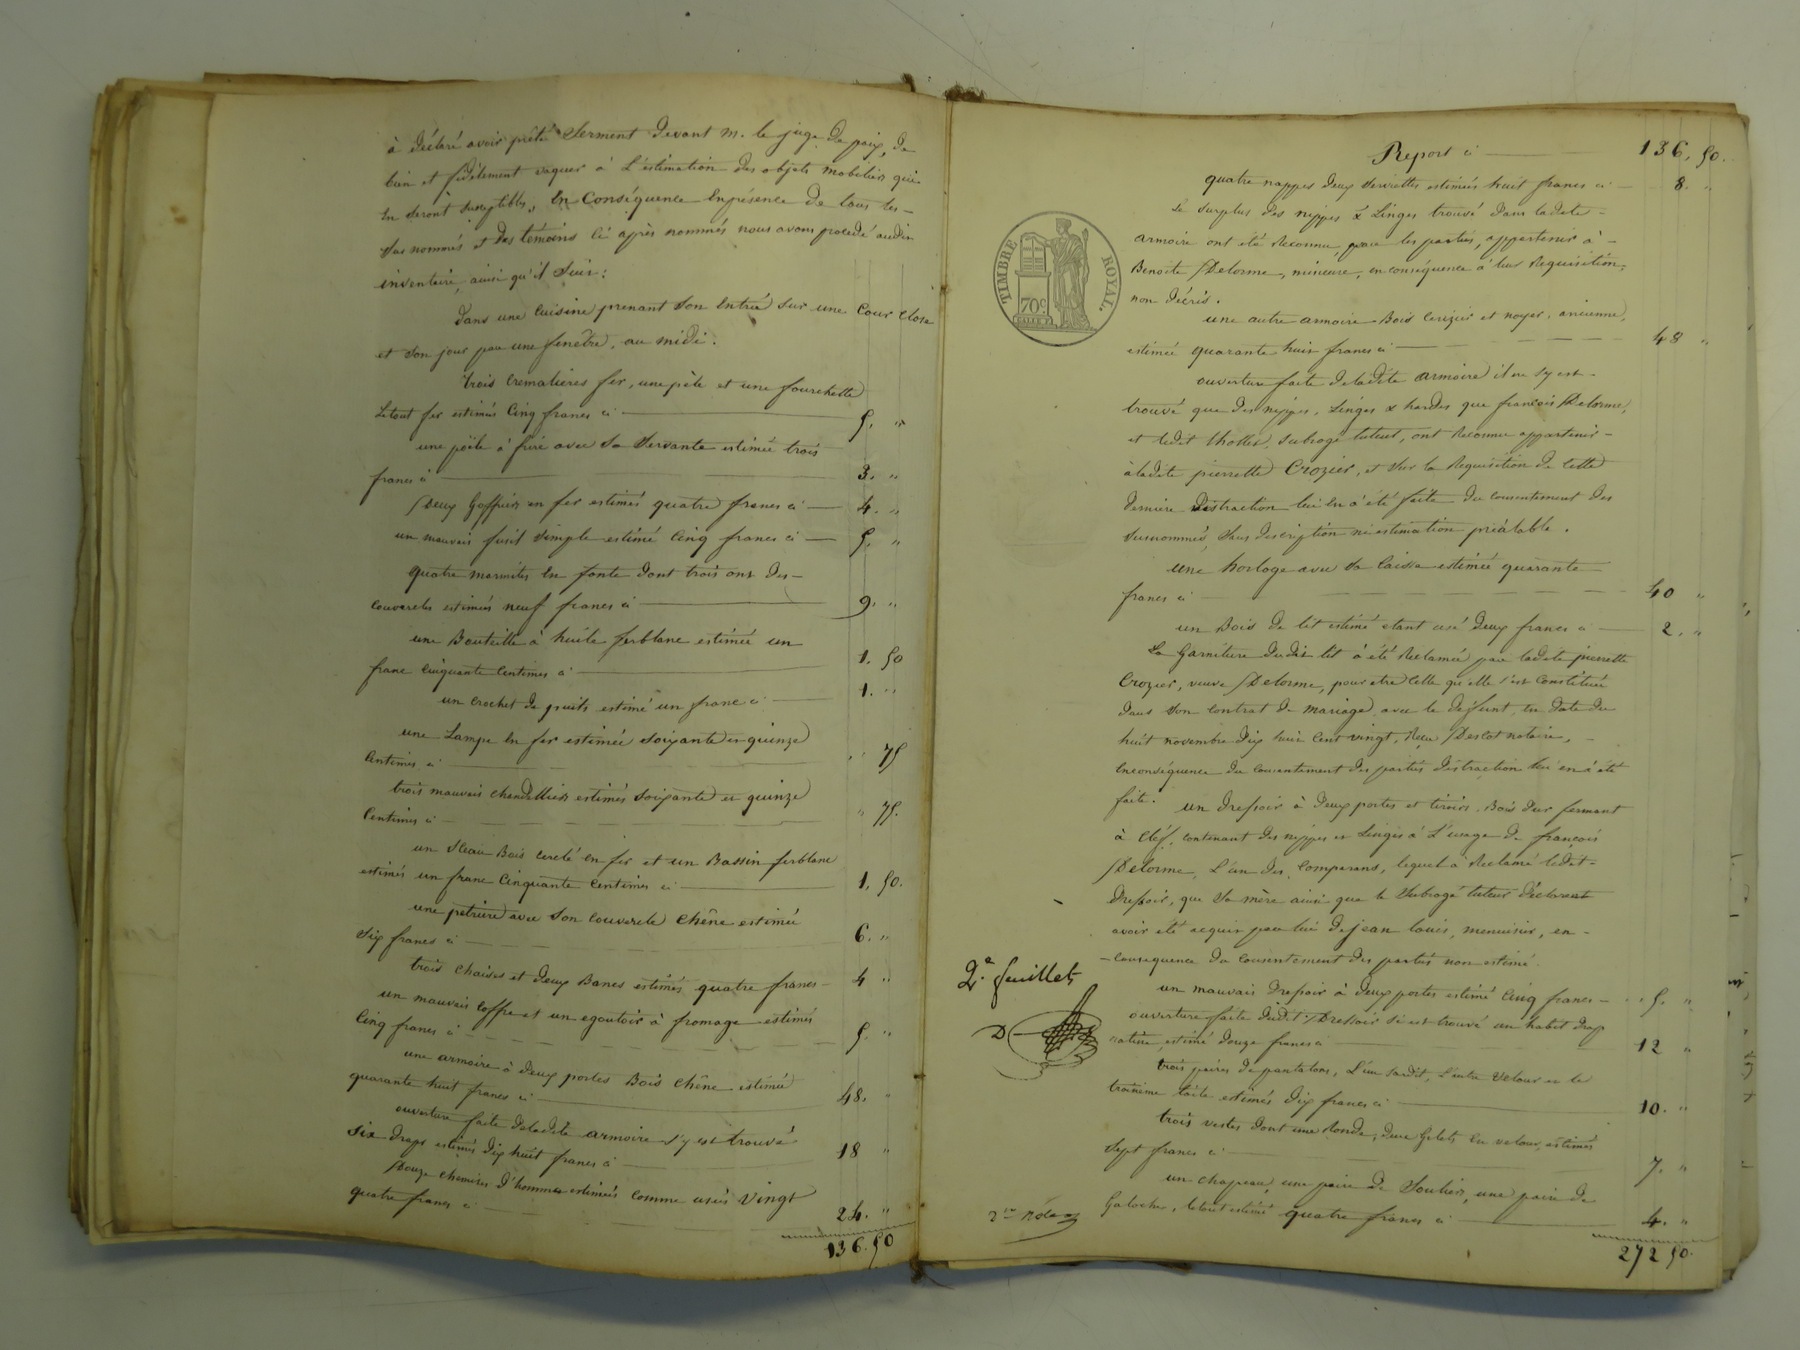 à déclaré avoir prêté Serment devant m. le juge de paix, de
bien et fidèlement vaquer à L'éstimation des objets mobiliers qui
En seront susceptibles, En Conséquence Enprésence de tous les-
sus nommés et des témoins ci après nommés nous avons procedé audit
inventaire, ainsi qu'il suit:
dans une Cuisine prenant son Entrée sur une Cour close
et son jour par une fenêtre, au midi.
trois Cremalières fer, une pèle et une fourchette
Letout fer estimés Cinq francs ci 5. "
une poële à frire avec sa Servante estimée trois
francs ci 3. "
Deux Goffriers en fer estimés quatre francs ci 4. "
un mauvais fusil simple estimé Cinq francs ci 5. "
quatre marmites En fonte dont trois ont des-
couvercles estimées neuf francs ci 9. "
une Bouteille à huile ferblanc estimée un
franc Cinquante Centimes ci 1. 50
un Crochet de puits estimé un franc ci 1. "
une Lampe En fer estimée soixante et quinze
Centimes ci " 75
trois mauvais chandelliers estimés soixante et quinze
Centimes ci " 75.
un Seau Bois cerclé en fer et un Bassin ferblanc
estimés un franc Cinquante Centimes ci 1. 50.
une petrière avec son Couvercle Chêne estimée
Six francs ci 6. "
trois Chaises et deux Bancs estimés quatre francs- 4 "
un mauvais Coffre et un egoutoir à fromage estimés
Cinq francs ci 5. "
une armoire à deux portes Bois Chêne estimée
quarante huit francs ci 48. "
ouverture faite deladite armoire s'y est trouvé
Six draps estimés dix huit francs ci 18 "
Douze chemises d'hommes estimées comme usées Vingt
quatre francs ci 24. "
136. 50
Report ci 136. 50.
quatre nappes deux serviettes estimés huit francs ci 8. "
Le surplus des nippes & Linges trouvé dans ladite-
armoire ont été Reconnu, par les parties, appartenir à-
Benoite Delorme, mineure, en conséquence à leur Requisition,
non décris.
TIMBRE ROYAL.
70c.
une autre armoire Bois Cerizier et noyer, ancienne,
estimée quarante huit francs ci 48 "
ouverture faite deladite armoire il ne s'y est-
trouvé que des nippes, Linges & hardes que françois Delorme,
et ledit Thollet, subrogé tuteur, ont Reconnu appartenir-
àladite pierrette Crozier, et sur la Requisition de Cette
derniere distraction lui En à été faite du consentement des
susnommés, sans description ni estimation préalable.
une horloge avec sa Caisse estimée quarante
francs ci 40 "
un Bois de lit estimé etant usé deux francs ci 2. "
La Garniture dudit lit à été Reclamée par ladite pierrette
Crozier, veuve Delorme, pour etre Celle qu'elle s'est Constituée
dans son Contrat de mariage avec le defunt, En date du
huit novembre dix huit Cent vingt, Reçu Descot notaire,-
Enconséquence du Consentement des parties distraction lui en à été
faite.
un Dressoir à deux portes et tiroirs, Bois dur fermant
à Clef, contenant des nippes et Linges à L'usage de françois
Delorme, L'un des Comparans, lequel à Reclamé ledit-
Dressoir, que sa mère ainsi que le Subrogé tuteur déclarent
avoir été acquis par lui de jean louis, menuisier, en-
-consequence du consentement des parties non estimé.
un mauvais Dressoir à deux portes estimé Cinq francs- 5. "
ouverture faite dudit Dressoir si est trouvé un habit drap
estimé douze francs ci 12 "
2.e feuillet
D
trois paires de pantalons, L'un L'autre Velour et le
troisième toile estimés dix francs ci 10. "
trois vestes dont une Ronde, deux Gilets En velour, estimés
Sept francs ci 7. "
un chapeau, une paire de Souliers, une paire de
Galoches, letout estimé quatre francs ci 4. "
272 50.